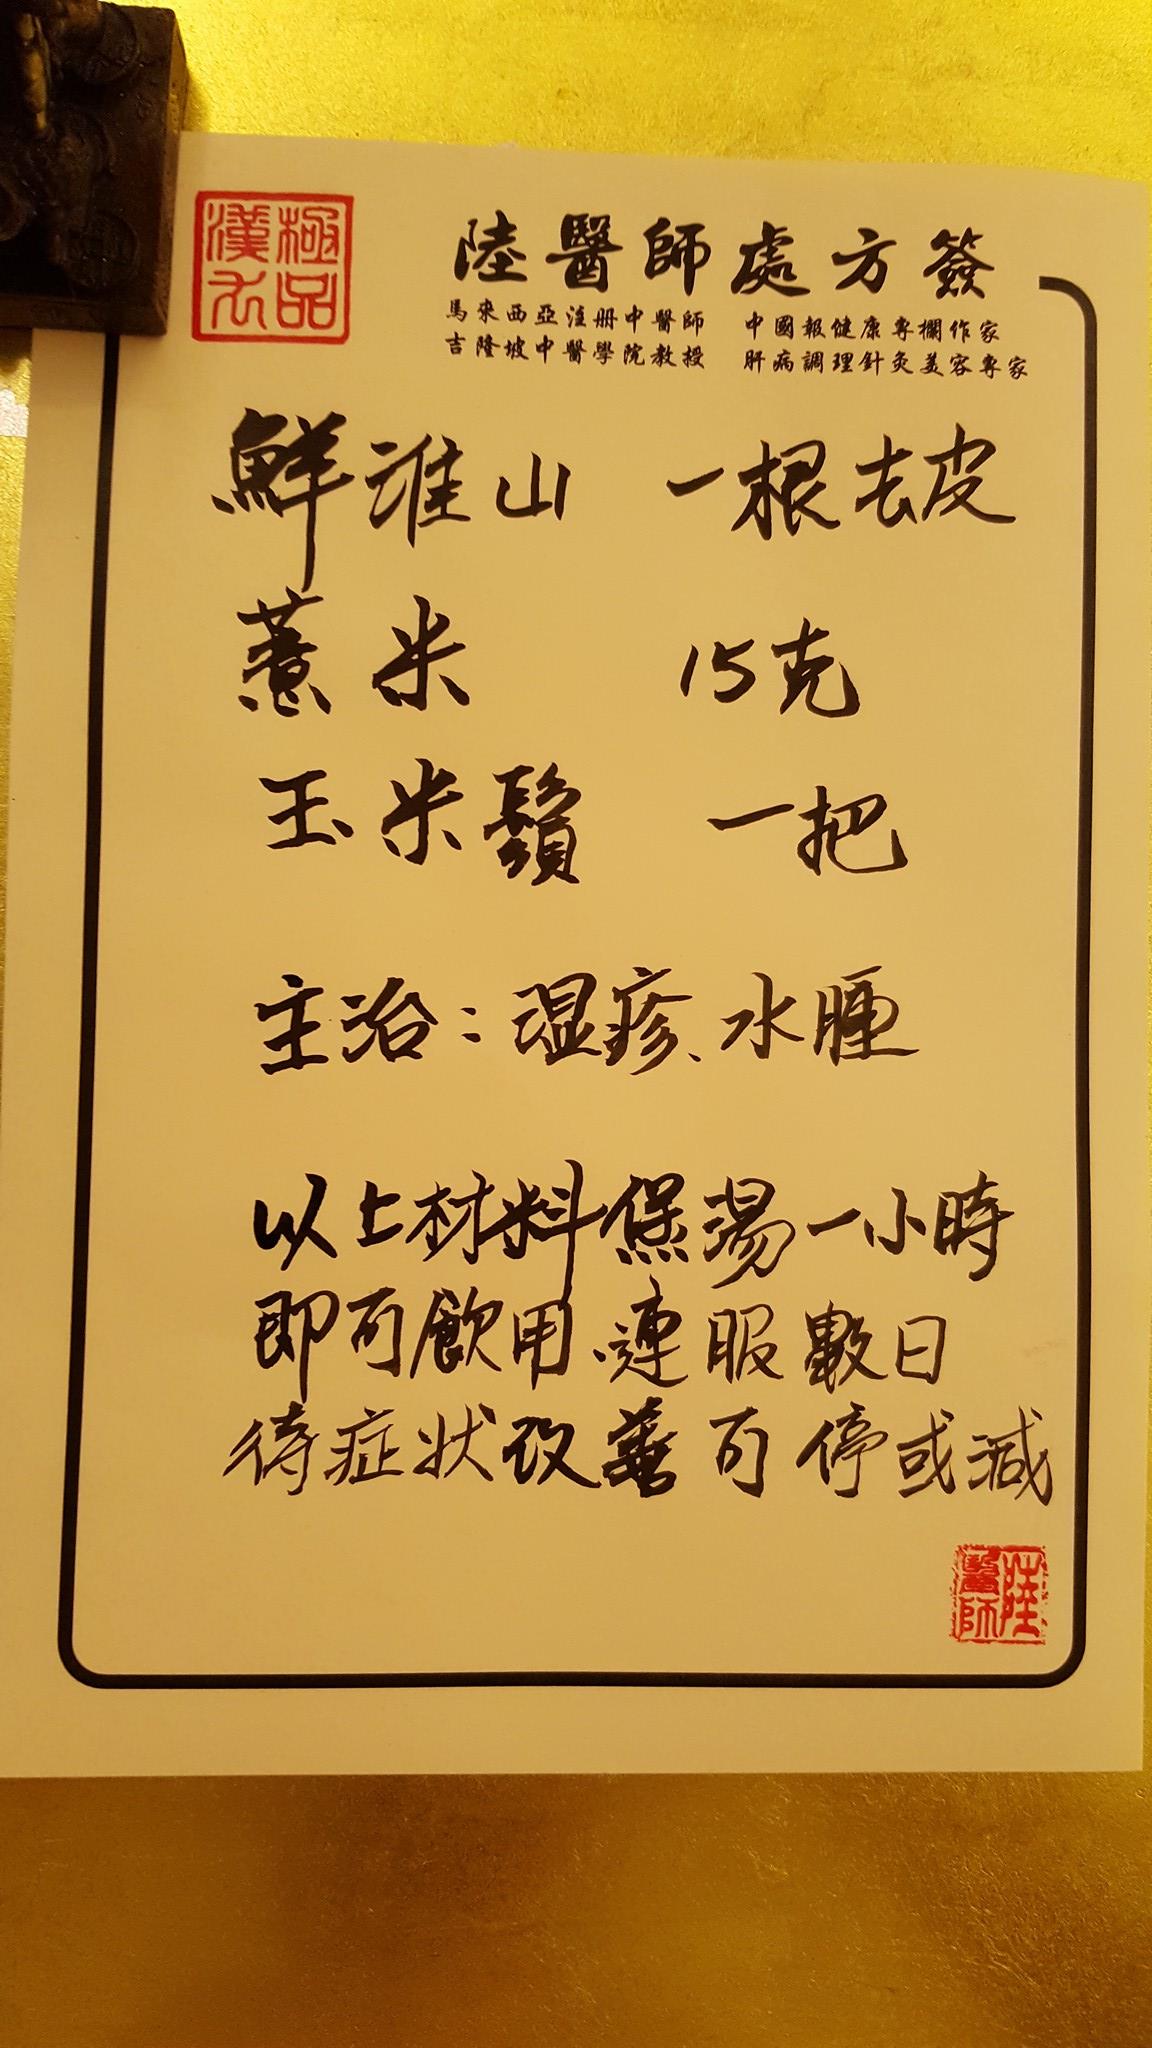 極品
漢方
陸醫師處方簽
馬來西亞注册中醫師 中國報健康專欄作家
吉隆坡中醫學院教授 肝病調理針灸美容專家
鮮淮山 一根去皮
薏米 15克
玉米鬚 一把
主治：湿疹、水腫
以上材料煲湯一小時
即可飲用、連服數日
待症狀改善可停或減
陸醫師